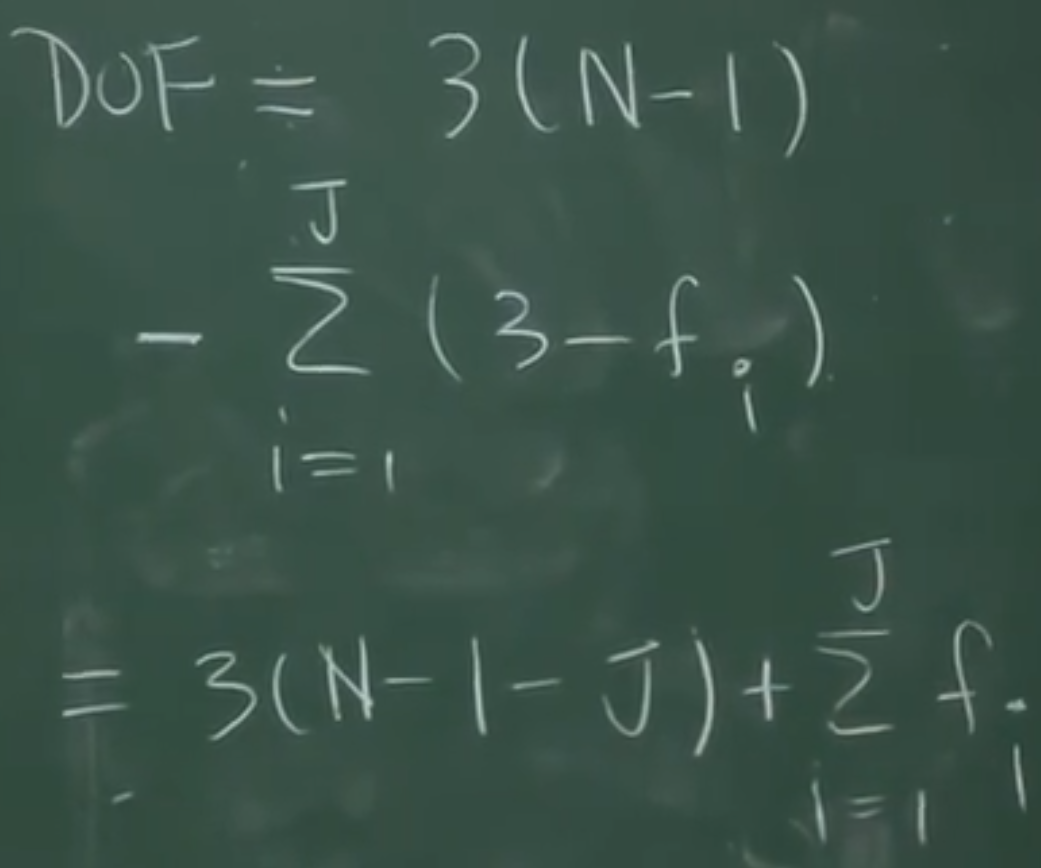 DOF = 3(N-1)
- \sum_{i=1}^{J} (3-f_i)
= 3(N-1-J) + \sum_{i=1}^{J} f_i